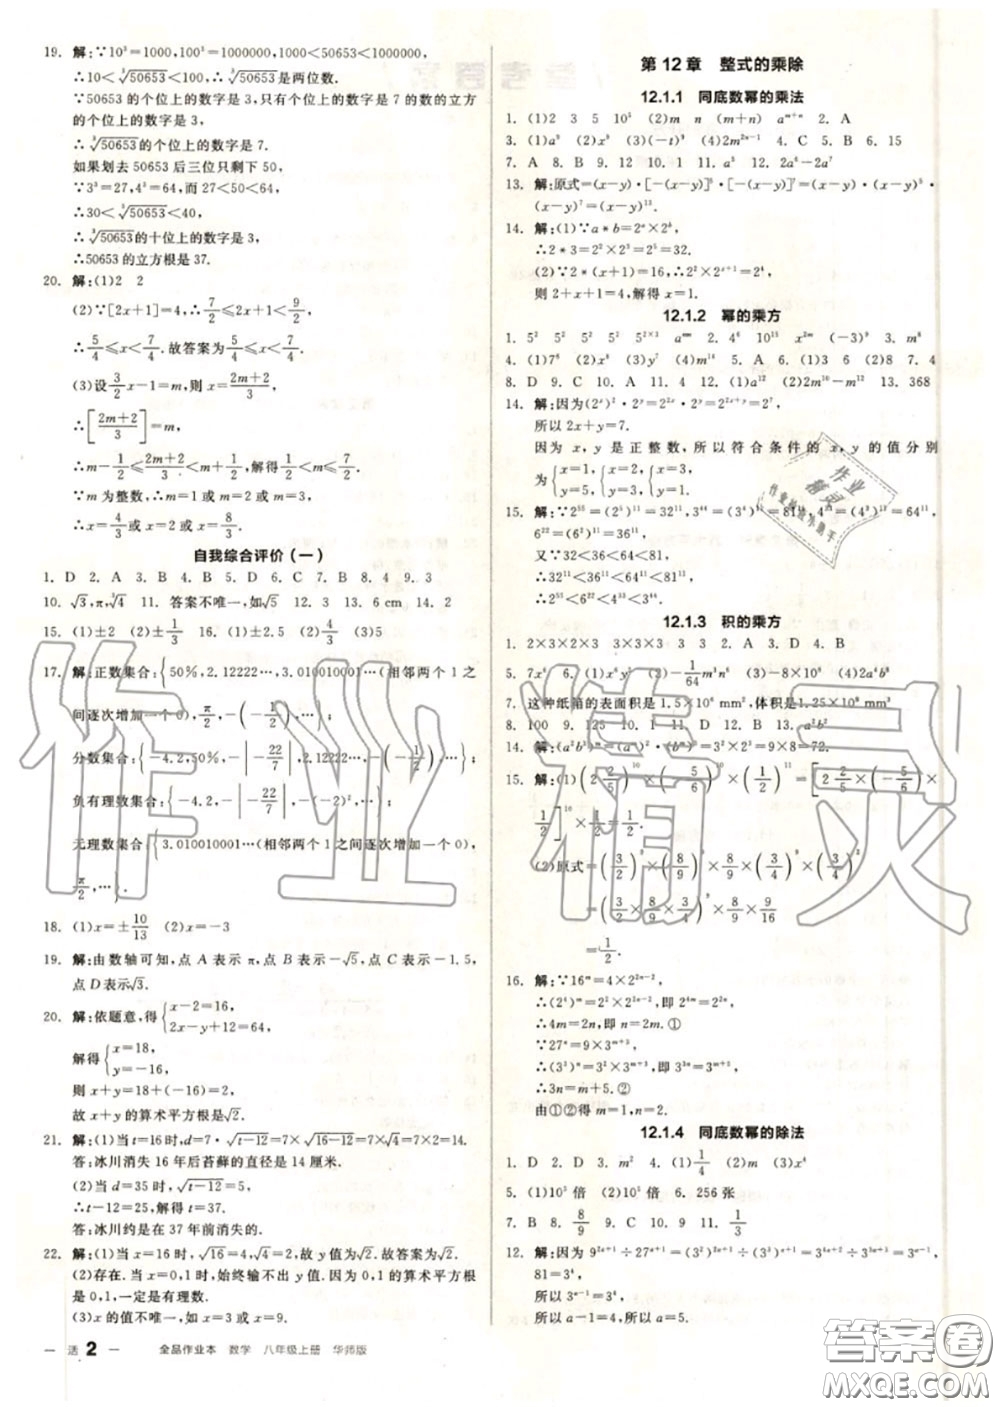 19. 解:∵10³=1000,100³=1000000,1000<50653<1000000,
∴10<∛50653<100,∴∛50653是两位数.
∵50653的个位上的数字是3,只有个位上的数字是7的数的立方
的个位上的数字是3,
∴∛50653的个位上的数字是7.
如果划去50653后三位只剩下50.
∵3³=27,4³=64,而27<50<64,
∴30<∛50653<40,
∴∛50653的十位上的数字是3,
∴50653的立方根是37.
20. 解:(1)2 2
(2)∵[2x+1]=4,∴7/2≤2x+1<9/2,
∴5/4≤x<7/4.故答案为5/4≤x<7/4.
(3)设3/2x−1=m,则x=(2m+2)/3,
∴[(2m+2)/3]=m,
∴m−1/2≤(2m+2)/3<m+1/2,解得1/2<m≤7/2.
∵m为整数,∴m=1或m=2或m=3,
∴x=4/3或x=2或x=8/3.
自我综合评价(一)
1. D 2. A 3. C 4. C 5. B 6. D 7. B 8. 4 9. 3
10. √3,π,∛4 11. 答案不唯一,如√5 12. 3 13. 6 cm 14. 2
15. (1)±2 (2)±4/3 16. (1)±2.5 (2)4 (3)5
17. 解:正数集合:{50%,2.12222…,3.010010001…(相邻两个1之
间逐次增加一个0),π/2,−(−1/2),…};
分数集合:{−4.2,50%,−|−22/7|,2.12222…,−(−1/2),…};
负有理数集合:{−4.2,−|−22/7|,−(−2)²,…};
无理数集合:{3.010010001…(相邻两个1之间逐次增加一个0),
π/2,…}.
18. (1)x=±10/13 (2)x=−3
19. 解:由数轴可知,点A表示π,点B表示−√5,点C表示−1.5,
点D表示√3.
20. 解:依题意,得{x−2=16, 2x−y+12=64,
解得{x=18, y=−16,
则x+y=18+(−16)=2,
故x+y的算术平方根是√2.
21. 解:(1)当t=16时,d=7·√(t−12)=7×√(16−12)=7×√4=7×2=14.
答:冰川消失16年后苔藓的直径是14厘米.
(2)当d=35时,√(t−12)=5,
∴t−12=25,解得t=37.
答:冰川约是在37年前消失的.
22. 解:(1)当x=16时,√16=4,√4=2,故y值为√2.故答案为√2.
(2)存在.当x=0,1时,始终输不出y值.因为0,1的算术平方根
是0,1,一定是有理数.
(3)x的值不唯一,如x=3或x=9.
— 活 2 — 全品作业本 数学 八年级上册 华师版
第12章 整式的乘除
12.1.1 同底数幂的乘法
1. (1)2 3 5 10⁵ (2)m n (m+n) aᵐ⁺ⁿ 2. A
3. (1)a⁹ (2)x⁶ (3)(−t)⁹ (4)2m²ⁿ⁻¹ 4. C 5. B 6. 15
7. A 8. B 9. 12 10. 1 11. a⁵ 12. 2a⁶−2a⁷
14. 解:(1)∵a*b=2ᵃ×2ᵇ,
∴2*3=2²×2³=2⁵=32.
(2)∵2*(x+1)=16,∴2²×2ˣ⁺¹=2⁴,
则2+x+1=4,解得x=1.
12.1.2 幂的乘方
1. 5² 5² 5² 5²ˣ³ aᵐⁿ 2. 4⁶ 10¹⁵ x²ᵐ (−3)⁹ 3. m⁸
8. D 9. C 10. A 11. 4 12. (1)a¹² (2)2m¹⁰−m¹² 13. 368
14. 解:因为(2ˣ)²·2ʸ=2²ˣ·2ʸ=2²ˣ⁺ʸ=2⁷,
所以2x+y=7.
因为x,y是正整数,所以符合条件的x,y的值分别
为{x=1, y=5,{x=2, y=3,{x=3, y=1.
15. 解:∵2⁵⁵=(2⁵)¹¹=32¹¹,3⁴⁴=(3⁴)¹¹=81¹¹,4³³=(4³)¹¹=64¹¹,
6²²=(6²)¹¹=36¹¹,
又∵32<36<64<81,
∴32¹¹<36¹¹<64¹¹<81¹¹,
∴2⁵⁵<6²²<4³³<3⁴⁴.
12.1.3 积的乘方
7. 这种纸箱的表面积是1.5×10⁶ mm²,体积是1.25×10⁸ mm³
8. 100 9. 125 10. 1 11. D 12. B 13. a²b²
14. 解:(a²b³)ᵐ=(aᵐ)²·(bᵐ)³=3²×2³=9×8=72.
16. 解:∵16ᵐ=4×2²ⁿ⁻²,
∴(2⁴)ᵐ=2²×2²ⁿ⁻²,即2⁴ᵐ=2²ⁿ,
∴4m=2n,即n=2m.①
∵27ⁿ=9×3ᵐ⁺³,
∴(3³)ⁿ=3²×3ᵐ⁺³,即3³ⁿ=3ᵐ⁺⁵,
∴3n=m+5.②
由①②得m=1,n=2.
12.1.4 同底数幂的除法
1. D 2. D 3. m² 4. (1)1/4 (2)m (3)x⁴
5. (1)10³倍 (2)10³倍 6. 256张
7. B 8. 8/9 9. 9/4 10. 9 11. 1/3
81=3⁴,
所以3ᵃ⁻¹=3⁴,
所以a−1=4,所以a=5.
作业
精灵
作业精灵
答案圈
MXQE.COM